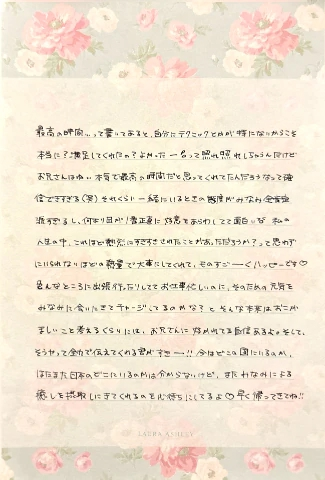 最高の時間…って書いてあると、自分にテクニックとかが特にないからこそ
本当に?満足してくれたの?よかったーーるって照れ照れしちゃうんだけど
お兄さんはねぃ本気で最高の時間だと思ってくれてたんだろうなって確
信できすぎる(笑)それくらい一緒にいるときの態度がみなみ全肯定
派すぎるし、何より目が!素直に好意をあらわしてて面白いな 私の
人生の中、これほど熱烈にすきすきされたことがあっただろうか?って思わず
にいられないほどの熱量で大事にしてくれて、ものすごーーくハッピーです♡
色んなところに出張行ったりしてお仕事忙しいのに、そのための元気を
みなみに会いにきてチャージしてるのかな?と そんな本来はおこが
ましいこと考えるくらいには、お兄さんに好かれてる自信あるよ。そして、
そうやって全力で伝えてくれる君がすきー!!今はどこの国にいるのか、
はたまた日本のどこにいるのかは分からないけど、またみなみによる
癒しを摂取しにきてくれるのを心待ちにしてるよ♡早く帰ってきてね!!
LAURA ASHLEY